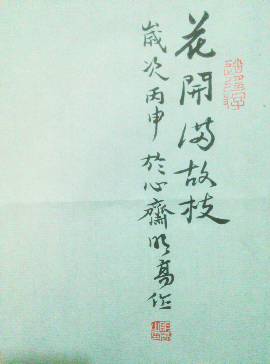 花開滿故枝
歲次丙申於心齋明高作